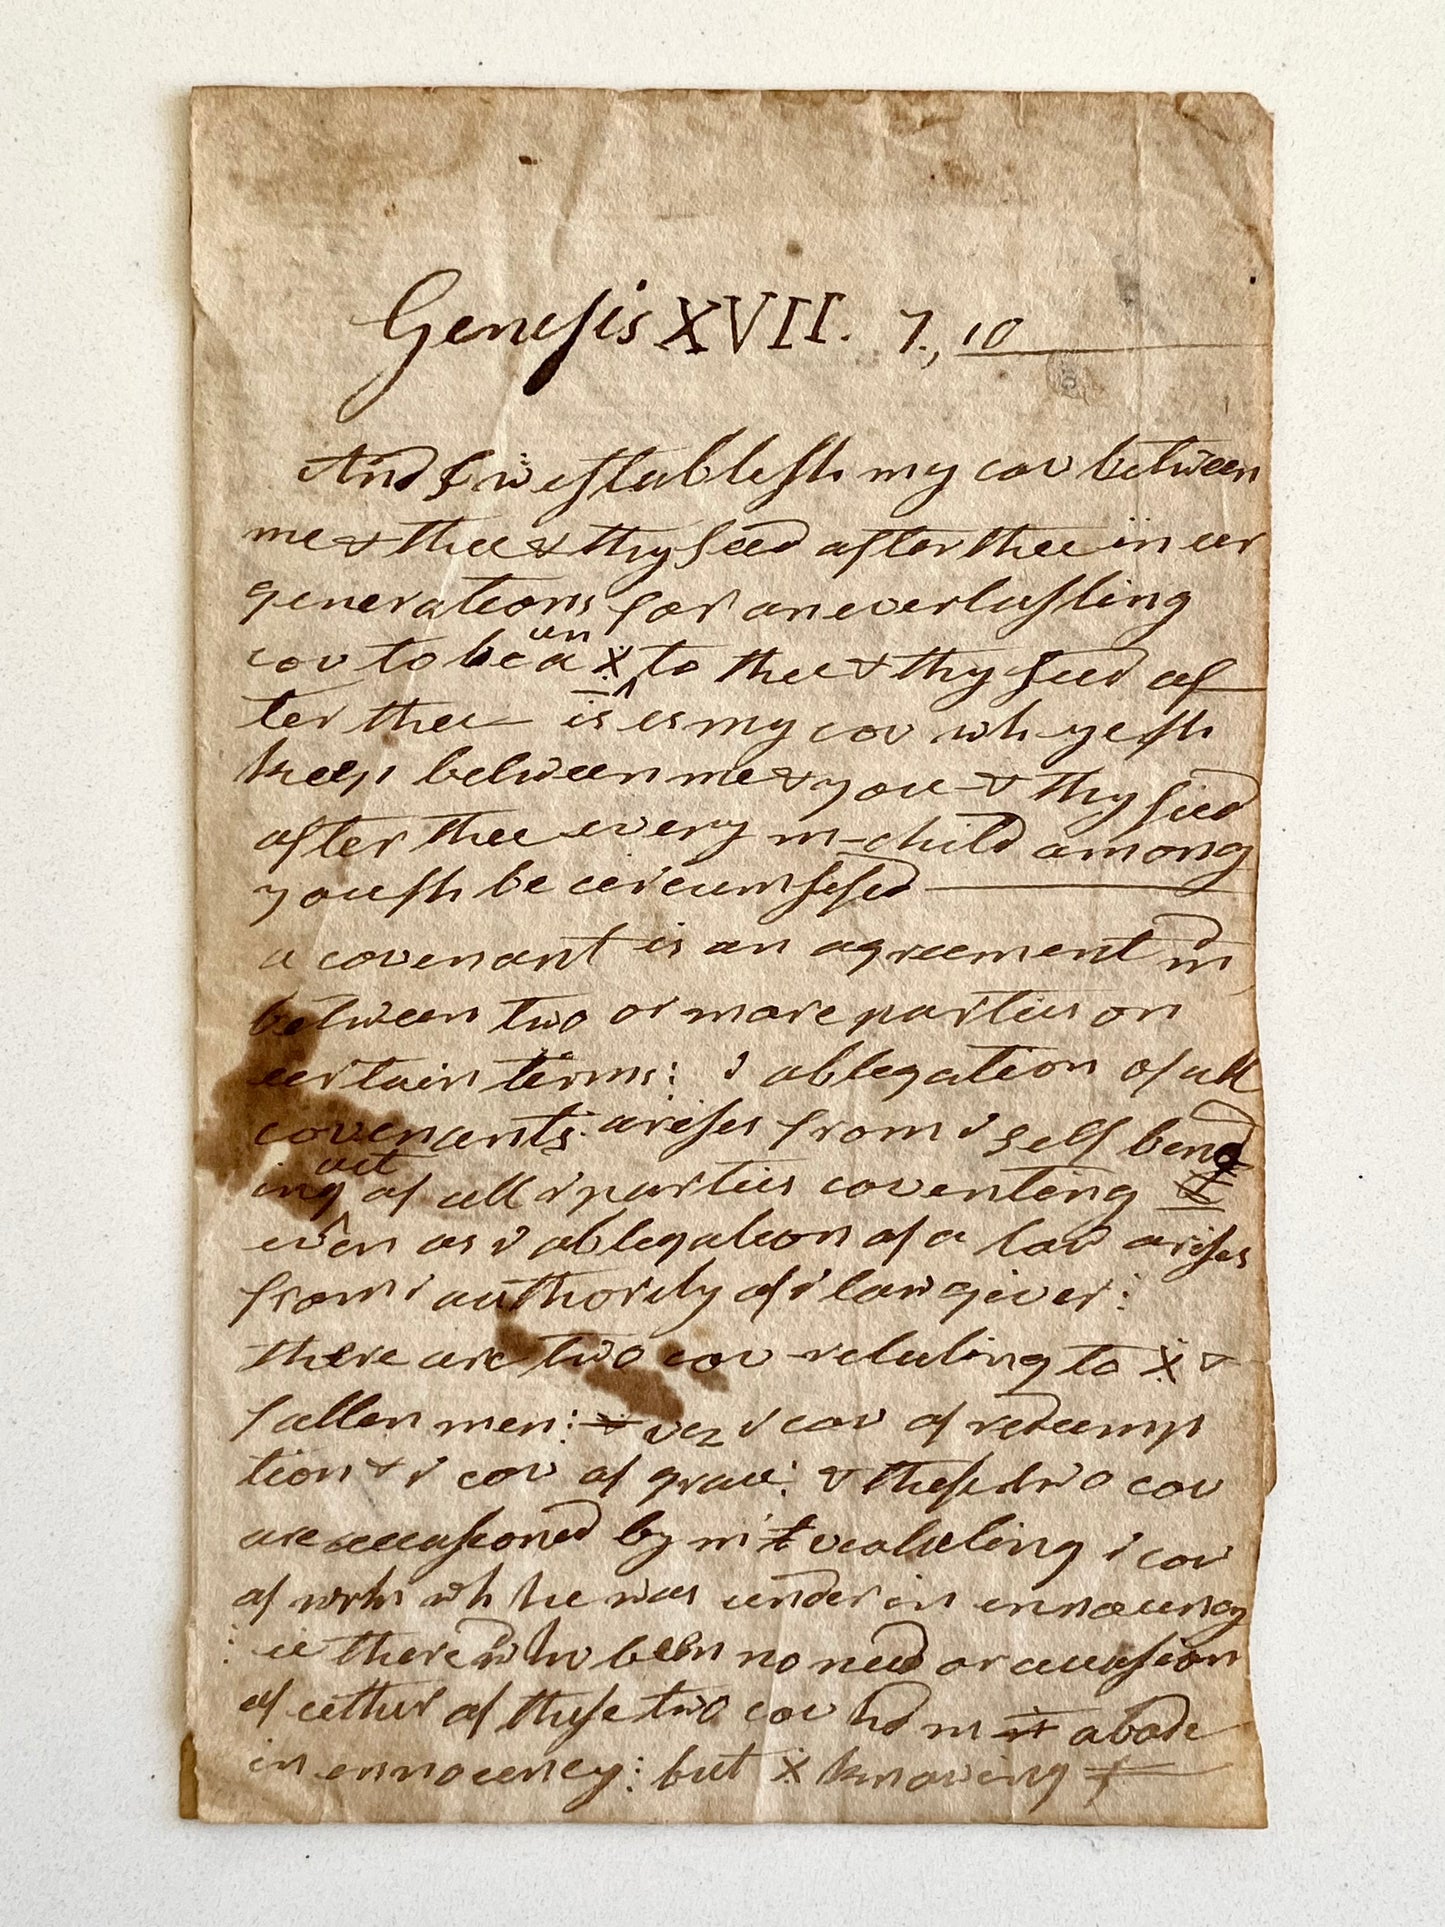 Genesis XVII. 7., 10
And I w establesh my cov between
me & thee & thy seed after thee in eer
generations for an everlasting
cov to be a un ẋ to thee & thy seed af
ter thee is es my cov wh ye sh
keep between me & you & thy seed
after thee every m-child among
you sh be cercumsesed
a covenant is an agreement m
between two or more parties on
certain terms: oblegation of all
covenants: areses from self bend
ing act of all parties coventing
even as oblegation of a law areses
from authorety of lawgever:
there are two cov relateng to ẋ &
fallen men: vez cov of redeemp
tion & cov of grace: & these two cov
are occasioned by m veolateng cov
of wrks wh he was under in ennocency
: ie there w been no need or occasion
of eether of these two cov hd m abode
in ennocency: but ẋ knoweng